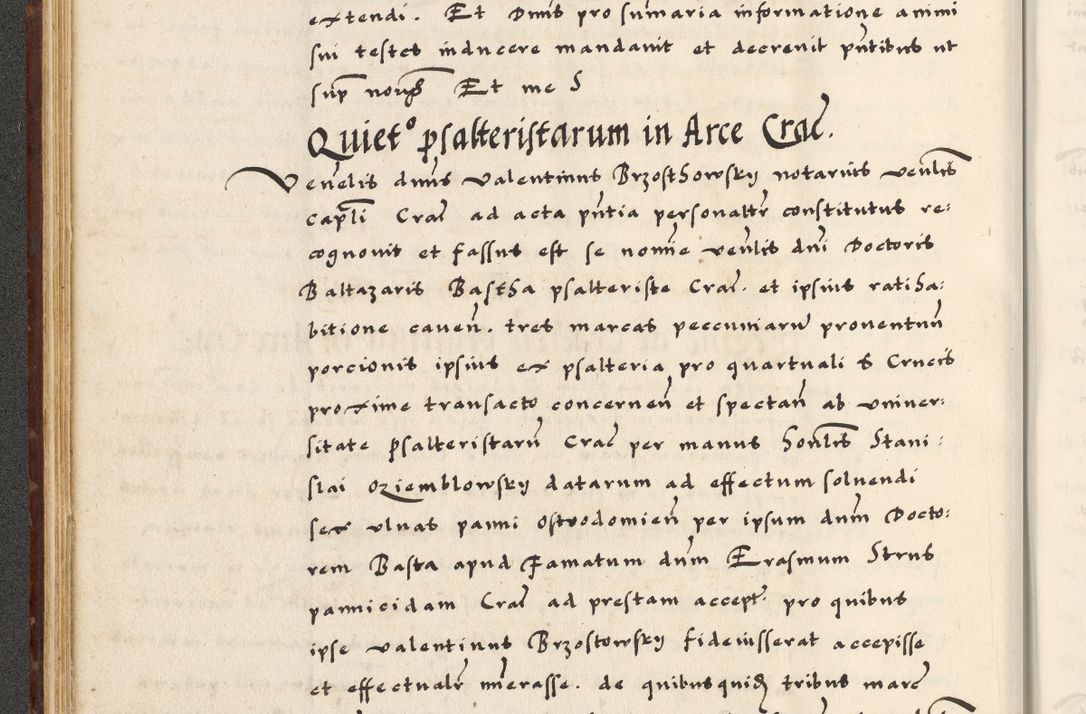 extendi. Et Dnus pro sumaria informatione animi
sui testes inducere mandavit et decrevit pntibus ut
sup Et me S
Quiet° psalteristarum in Arce Crac.
Venelis dnus Valentinus Brzosthowsky notarius venlis
capli Crac ad acta pntia personaltr constitutus re:
cognovit et fassus est se nomie venlis dni Doctoris
Baltazaris Bastha psalteriste Crac. et ipsius ratiha:
bitione caven. tres marcas peccuniaru proventuu
porcionis ipsius ex psalteria pro quartuali S Crucis
proxime transacto concernen et spectan ab univer:
sitate Psalteristaru Crac per manus honlis Stani:
slai Oziemblowsky datarum ad effectum solvendi
sex ulnas panni Ostrodomien per ipsum dnm Docto:
rem Basta apud Famatum dnm Erasmum Strus
pannicidam Crac ad prestam accept. pro quibus
ipse Valentinus Brzostowsky fideiusserat accepisse
et effectualr nuerasse. de quibusquid tribus marc